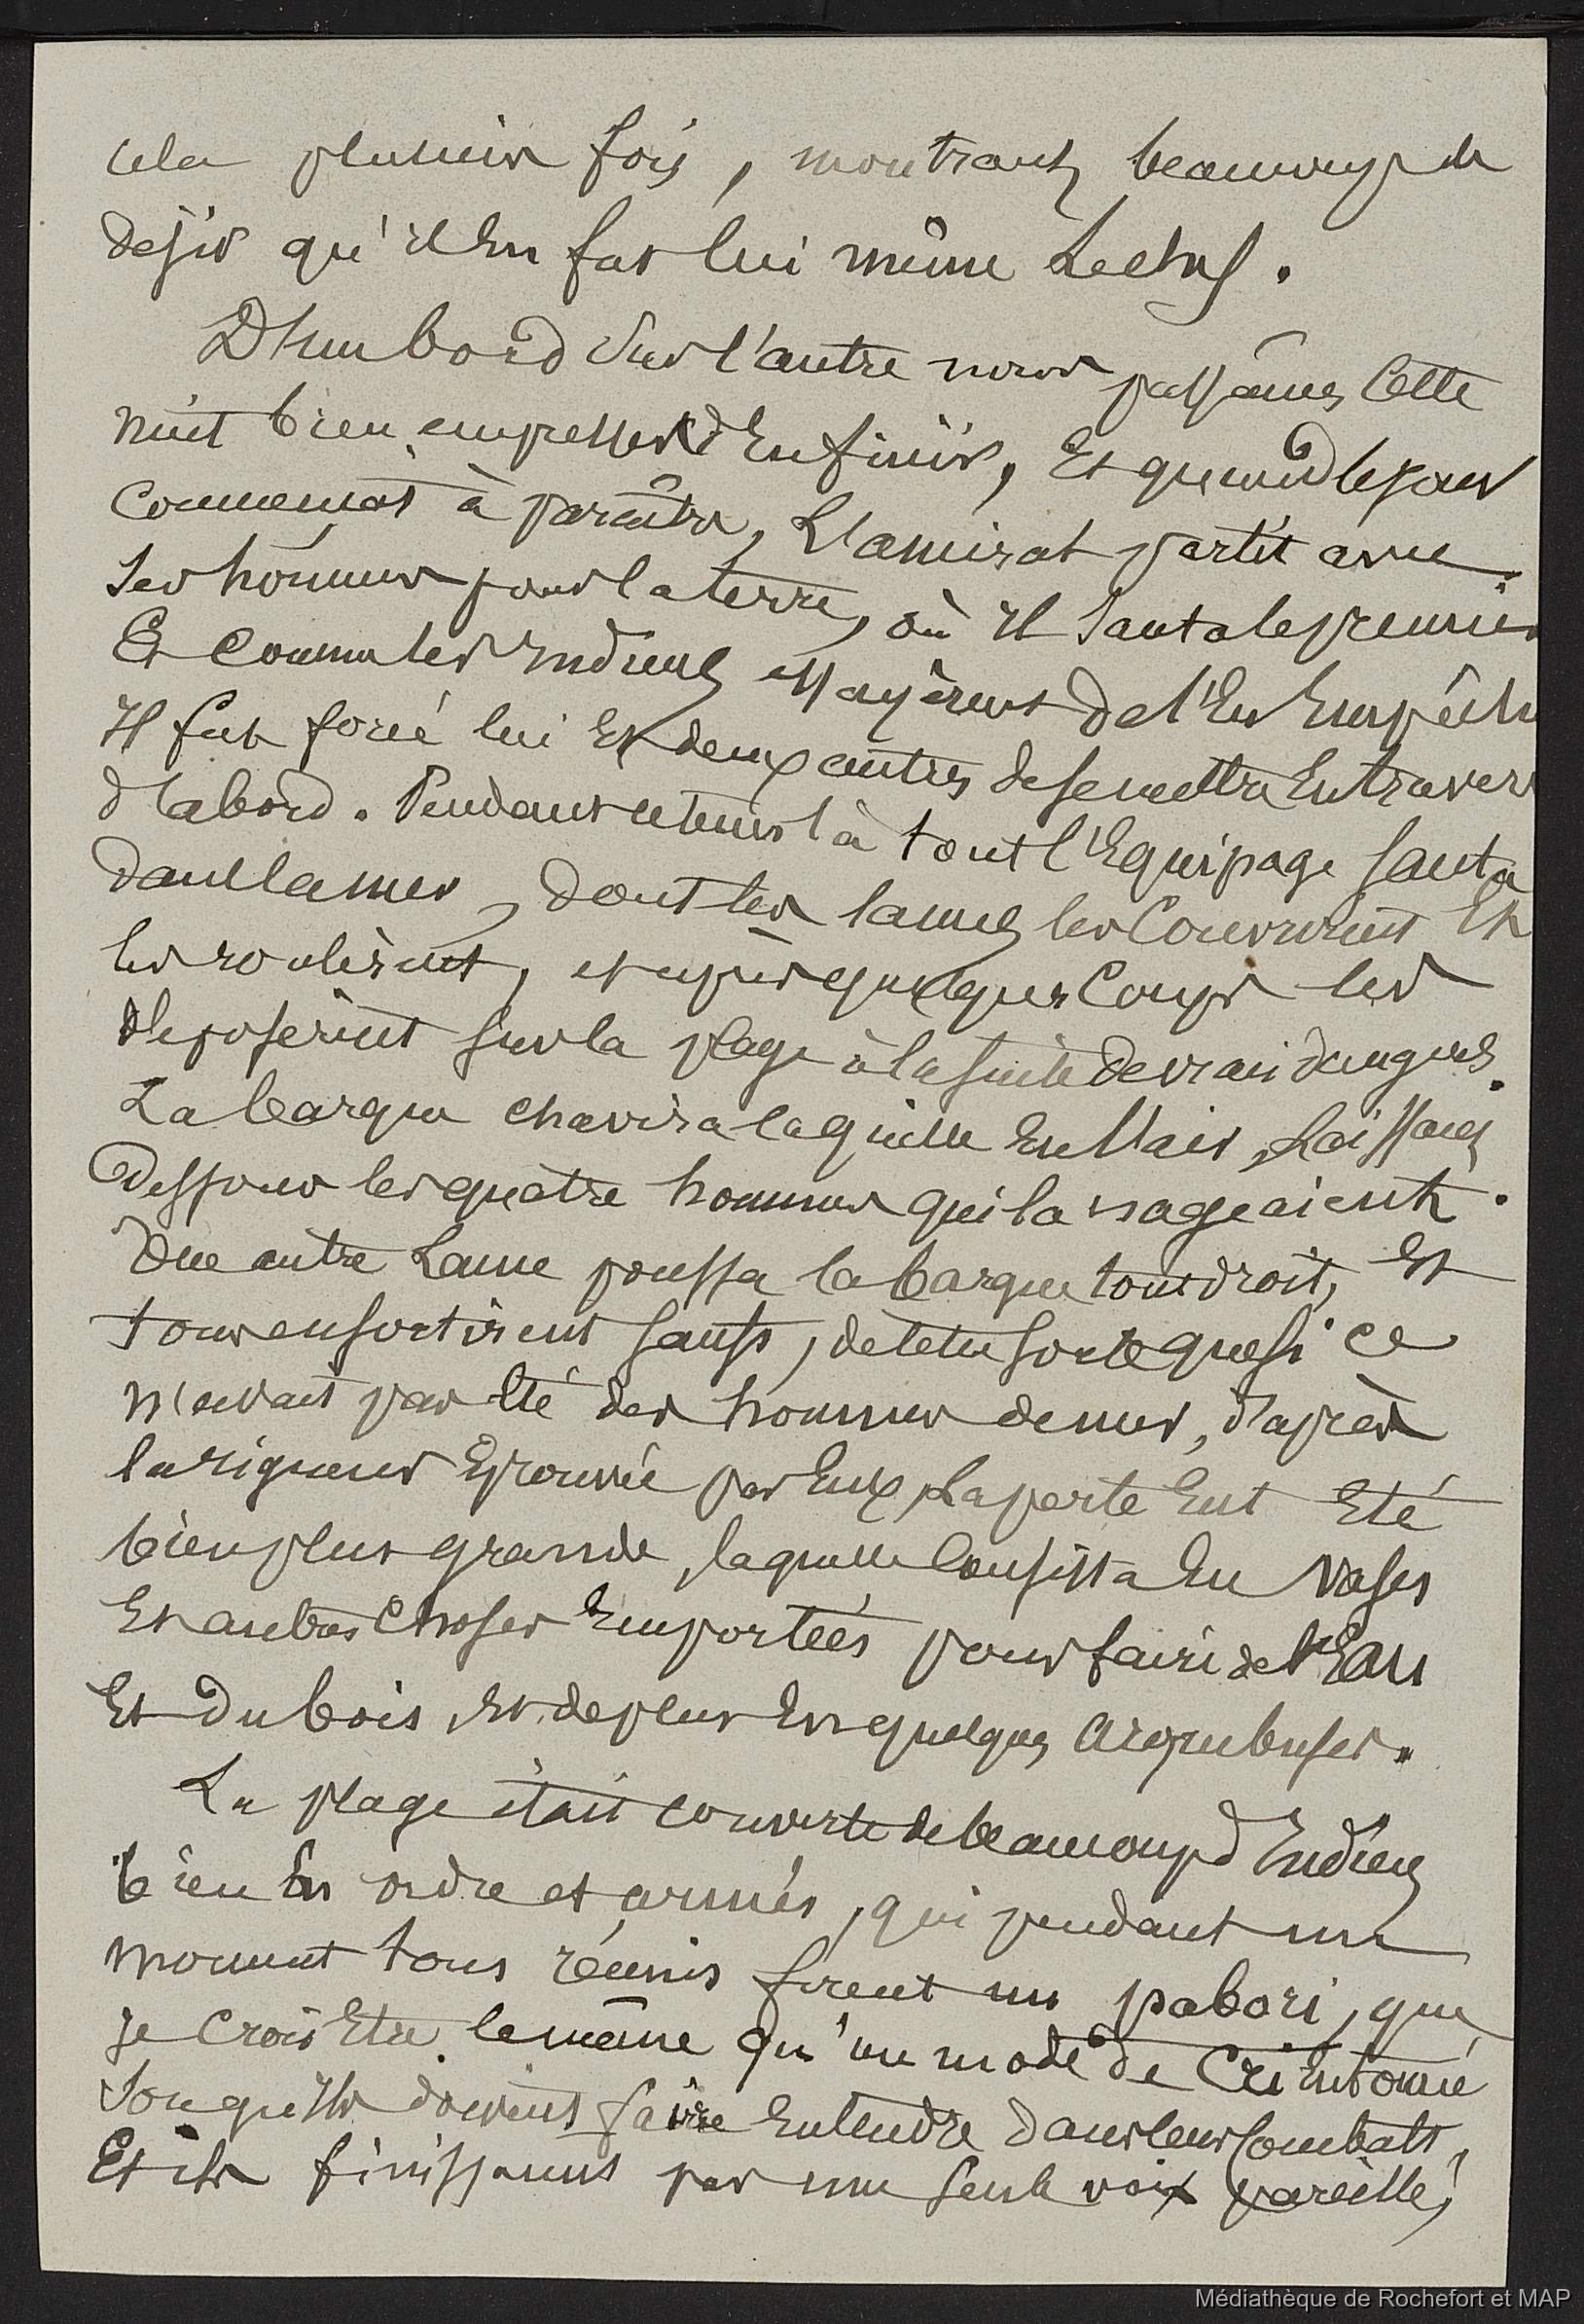 cela plusieurs fois, montrant beaucoup de
désir qu'il en fut lui même le chef.
D'un bord sur l'autre nous passâmes cette
nuit bien empressés d'en finir, Et quand le jour
commençat à paraître, L'amirat partit avec
ses hommes pour la terre, où il sauta le premier
Et comme les Indiens essayèrent de l'en empêcher
Il fut forcé lui Et deux autres de se mettre En travers
d'abord. Pendant ce temps là tout l'Equipage sauta
dans la mer, dont les lames les couvrirent Et
les roulèrent, et après quelques coups les
déposèrent sur la plage à la suite de vrais dangers.
La barque chavira la quille En l'air, laissant
dessous les quatre hommes qui la nageaient.
Une autre Lame poussa la barque tout droit, Et
tous en sortirent saufs, de telle sorte que si ce
n'avait pas été des hommes de mer, d'après
la rigueur Eprouvée par Eux, La perte Eut Eté
bien plus grande, laquelle consista En vases
Et autres choses Emportées pour faire de l'Eau
Et du bois, Et de plus En quelques arquebuses.
La plage était couverte de beaucoup d'Indiens
bien En ordre et armés, qui pendant un
moment tous réunis firent un pabori, que
je crois Etre le même qu'un mode de Cri Entonné
qu'ils doivent faire Entendre dans leurs combats,
Et ils finissent par une seule voix pareille,
Médiathèque de Rochefort et MAP